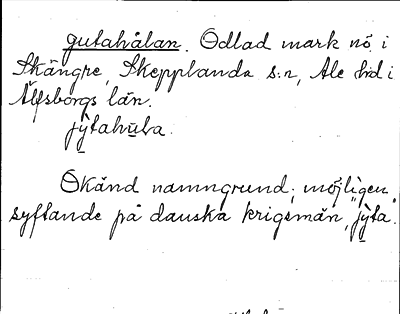 gutahålan. Odlad mark nö. i
Skångre, Skepplanda s:n, Ale hd i
Älfsborgs län.
jỳtahu̲la.
Okänd namngrund; möjligen
syftande på danska krigsmän, "jỳta".